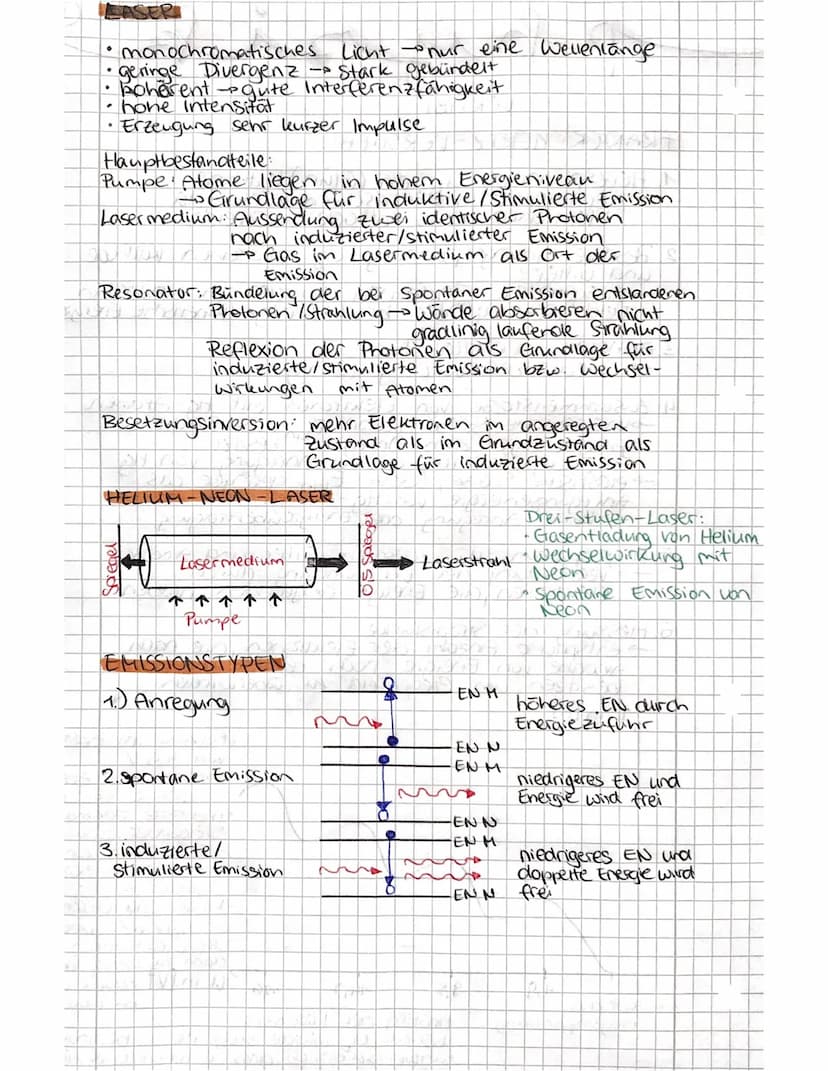 LASER
• monochromatisches Licht → nur eine Wellenlänge
• geringe Divergenz → stark gebündelt
• kohärent → gute Interferenzfähigkeit
• hohe Intensität
• Erzeugung sehr kurzer Impulse
Hauptbestandteile:
Pumpe: Atome liegen in hohem Energieniveau
→ Grundlage für induktive/stimulierte Emission
Lasermedium: Aussendung zwei identischer Photonen
nach induzierter/stimulierter Emission
→ Gas im Lasermedium als Ort der
Emission
Resonator: Bündelung der bei spontaner Emission entstandenen
Photonen/Strahlung → Wände absorbieren nicht
gradlinig laufende Strahlung
Reflexion der Photonen als Grundlage für
induzierte/stimulierte Emission bzw. Wechsel-
wirkungen mit Atomen
Besetzungsinversion: mehr Elektronen im angeregten
Zustand als im Grundzustand als
Grundlage für induzierte Emission
HELIUM-NEON-LASER
Spiegel
Lasermedium
Pumpe
Laserstrahl
Drei-Stufen-Laser:
• Gasentladung von Helium
• Wechselwirkung mit
Neon
• Spontane Emission von
Neon
EMISSIONSTYPEN
1.) Anregung
EN M
EN N
höheres EN durch
Energiezufuhr
2. spontane Emission
EN M
EN N
niedrigeres EN und
Energie wird frei
3. induzierte/
stimulierte Emission
EN M
EN N
niedrigeres EN und
doppelte Energie wird
frei